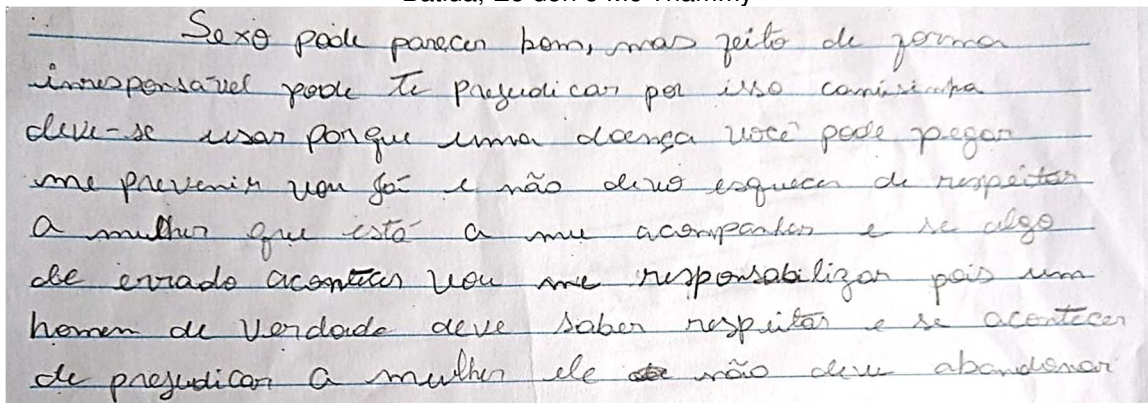 Batida, Ed don e Mc Thammy
Sexo pode parecer bom, mas feito de forma
irresponsável pode te prejudicar por isso camisinha
deve-se usar porque uma doença você pode pegar
me prevenir vou já e não devo esquecer de respeitar
a mulher que está a me acompanhar e se algo
de errado acontecer vou me responsabilizar pois um
homem de verdade deve saber respeitar e se acontecer
de prejudicar a mulher ele não deve abandonar